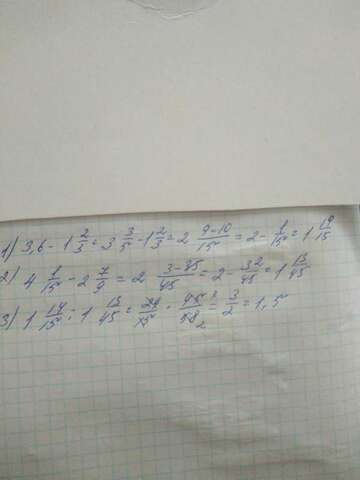 1) 3,6 - 1 2/3 = 3 3/5 - 1 2/3 = 2 9-10/15 = 2 - 1/15 = 1 14/15
2) 4 1/15 - 2 7/9 = 2 3-35/45 = 2 - 32/45 = 1 13/45
3) 1 14/15 : 1 13/45 = 29/15 · 45/58 = 3/2 = 1,5